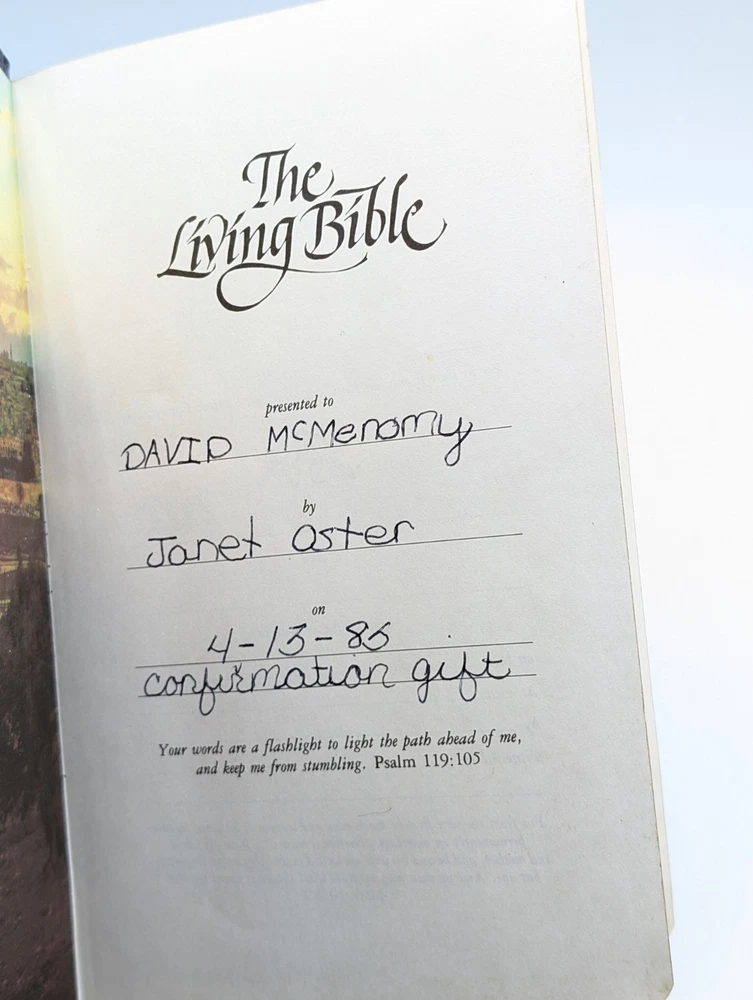 The
Living Bible
presented to
DAVID McMenomy
by
Janet Oster
on
4-13-86
confirmation gift
Your words are a flashlight to light the path ahead of me,
and keep me from stumbling. Psalm 119:105